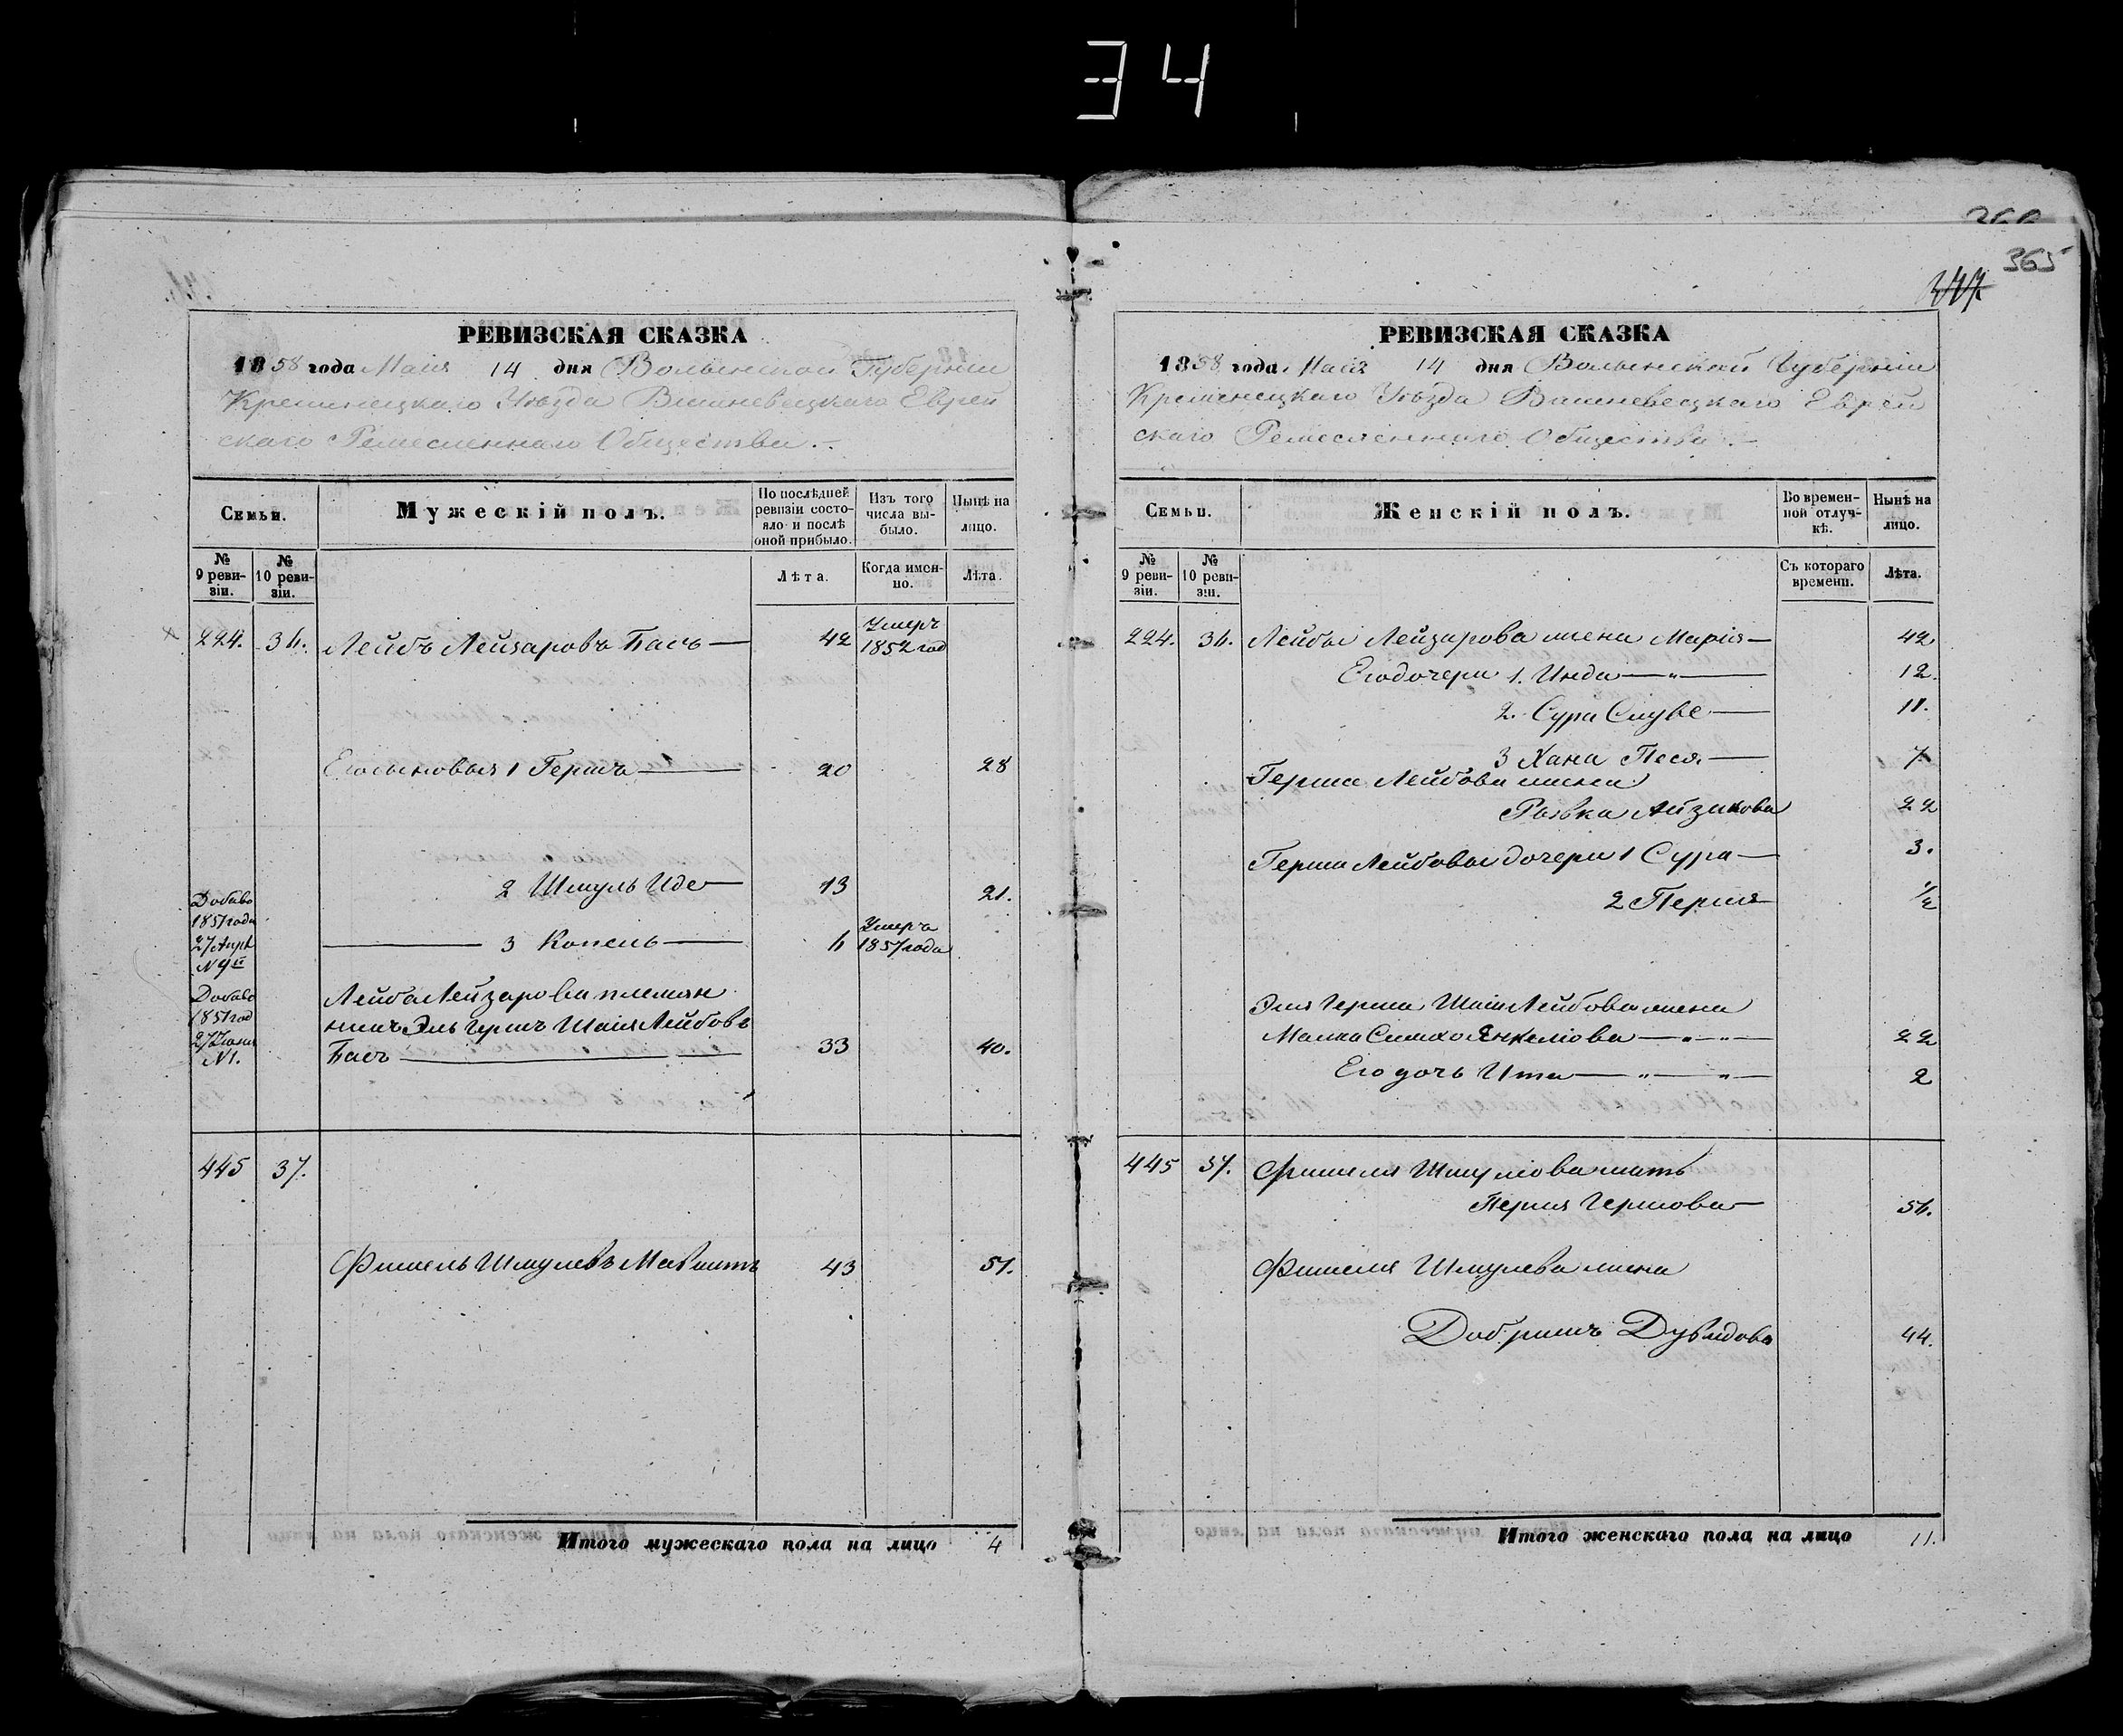 34
366
365
347
РЕВИЗСКАЯ СКАЗКА
1858 года Маия 14 дня Волынской Губерніи
Кременецкаго Уѣзда Вишневецкаго Еврей
скаго Ремесленнаго Общества.
Семьи.
Мужескій полъ.
По послѣдней ревизіи состояло и послѣ оной прибыло.
Изъ того числа выбыло.
Нынѣ на лицо.
№ 9 ревизіи.
№ 10 ревизіи.
Лѣта.
Когда именно.
Лѣта.
224. 36. Лейбъ Лейзаровъ Басъ — 42 Умеръ 1852 год
Его сыновья 1 Гершъ — 20 28
2 Шмуль Иде — 13 21.
Добаво 1851 года 27 Апрѣ № 9й
3 Копель — 6 Умеръ 1857 года
Добаво 1851 год 27 Июня № 1.
Лейба Лейзарова племян
никъ Эль Гершъ Шаія Лейбовъ
Басъ — 33 40.
445 37.
Фишель Шмулевъ 43 51.
Итого мужескаго пола на лицо 4
РЕВИЗСКАЯ СКАЗКА
1858 года Маия 14 дня Волынской Губерніи
Кременецкаго Уѣзда Вишневецкаго Еврей
скаго Ремесленнаго Общества.
Семьи.
Женскій полъ.
Во временной отлучкѣ.
Нынѣ на лицо.
№ 9 ревизіи.
№ 10 ревизіи.
Съ котораго времени.
Лѣта.
224. 36. Лейбы Лейзарова жена Марія — 42
Его дочери 1. Инда — 12.
2. Сура Слуве — 11.
3 Хана Песя — 7
Герша Лейбова жена
Рывка Айзикова 22
Герша Лейбовы дочери 1 Сура — 3.
2 Перля 1/2
Эля Герша Шаія Лейбова жена
Малка Симхо Янкелюва — 22
Его дочь Ита — 2
445 37. Фишеля Шмулюва мать
Перля Гершова — 56.
Фишеля Шмулева жена
Добришъ Дувидова 44.
Итого женскаго пола на лицо 11.